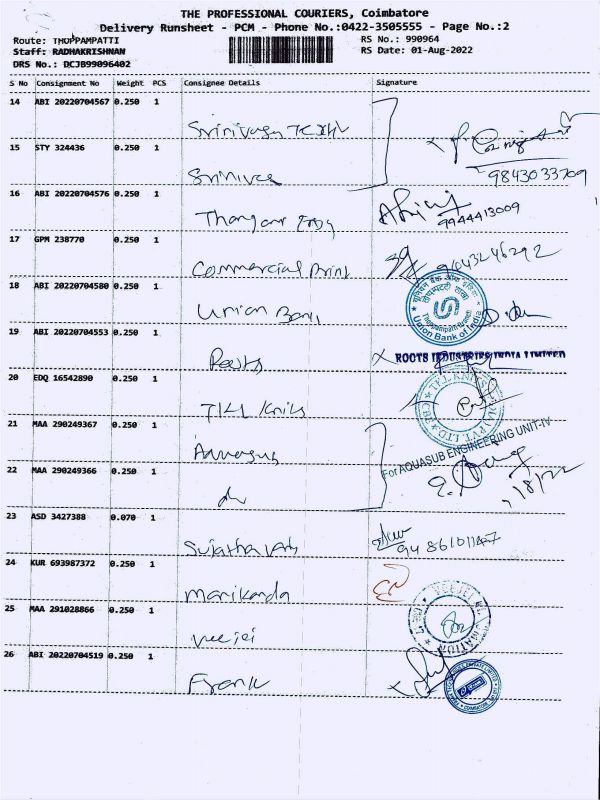 THE PROFESSIONAL COURIERS, Coimbatore
Delivery Runsheet - PCM - Phone No.:0422-3505555 - Page No.:2
Route: THOPPAMPATTI
RS No.: 990964
Staff: RADHAKRISHNAN
RS Date: 01-Aug-2022
DRS No.: DCJB99096402
S No Consignment No Weight PCS Consignee Details Signature
14 ABI 20220704567 0.250 1
15 STY 324436 0.250 1 Srinivas
9843033709
16 ABI 20220704576 0.250 1
9944413009
17 GPM 238770 0.250 1 Commercial Print
9043246292
18 ABI 20220704580 0.250 1 Union Bank
Thoppampatti Branch
Union Bank of India
19 ABI 20220704553 0.250 1 Roots
ROOTS INDUSTRIES INDIA LIMITED
20 EDQ 16542890 0.250 1
21 MAA 290249367 0.250 1
For AQUASUB ENGINEERING UNIT-IV
22 MAA 290249366 0.250 1 do
1/8/22
23 ASD 3427388 0.070 1
24 KUR 693987372 0.250 1 Manikanda
25 MAA 291028866 0.250 1 Veejei
26 ABI 20220704519 0.250 1 Frank